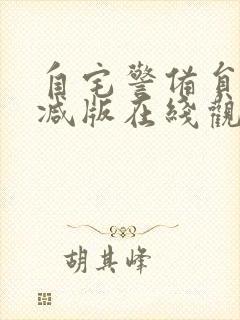 自宅警備員
减版在綫觀
胡其峰